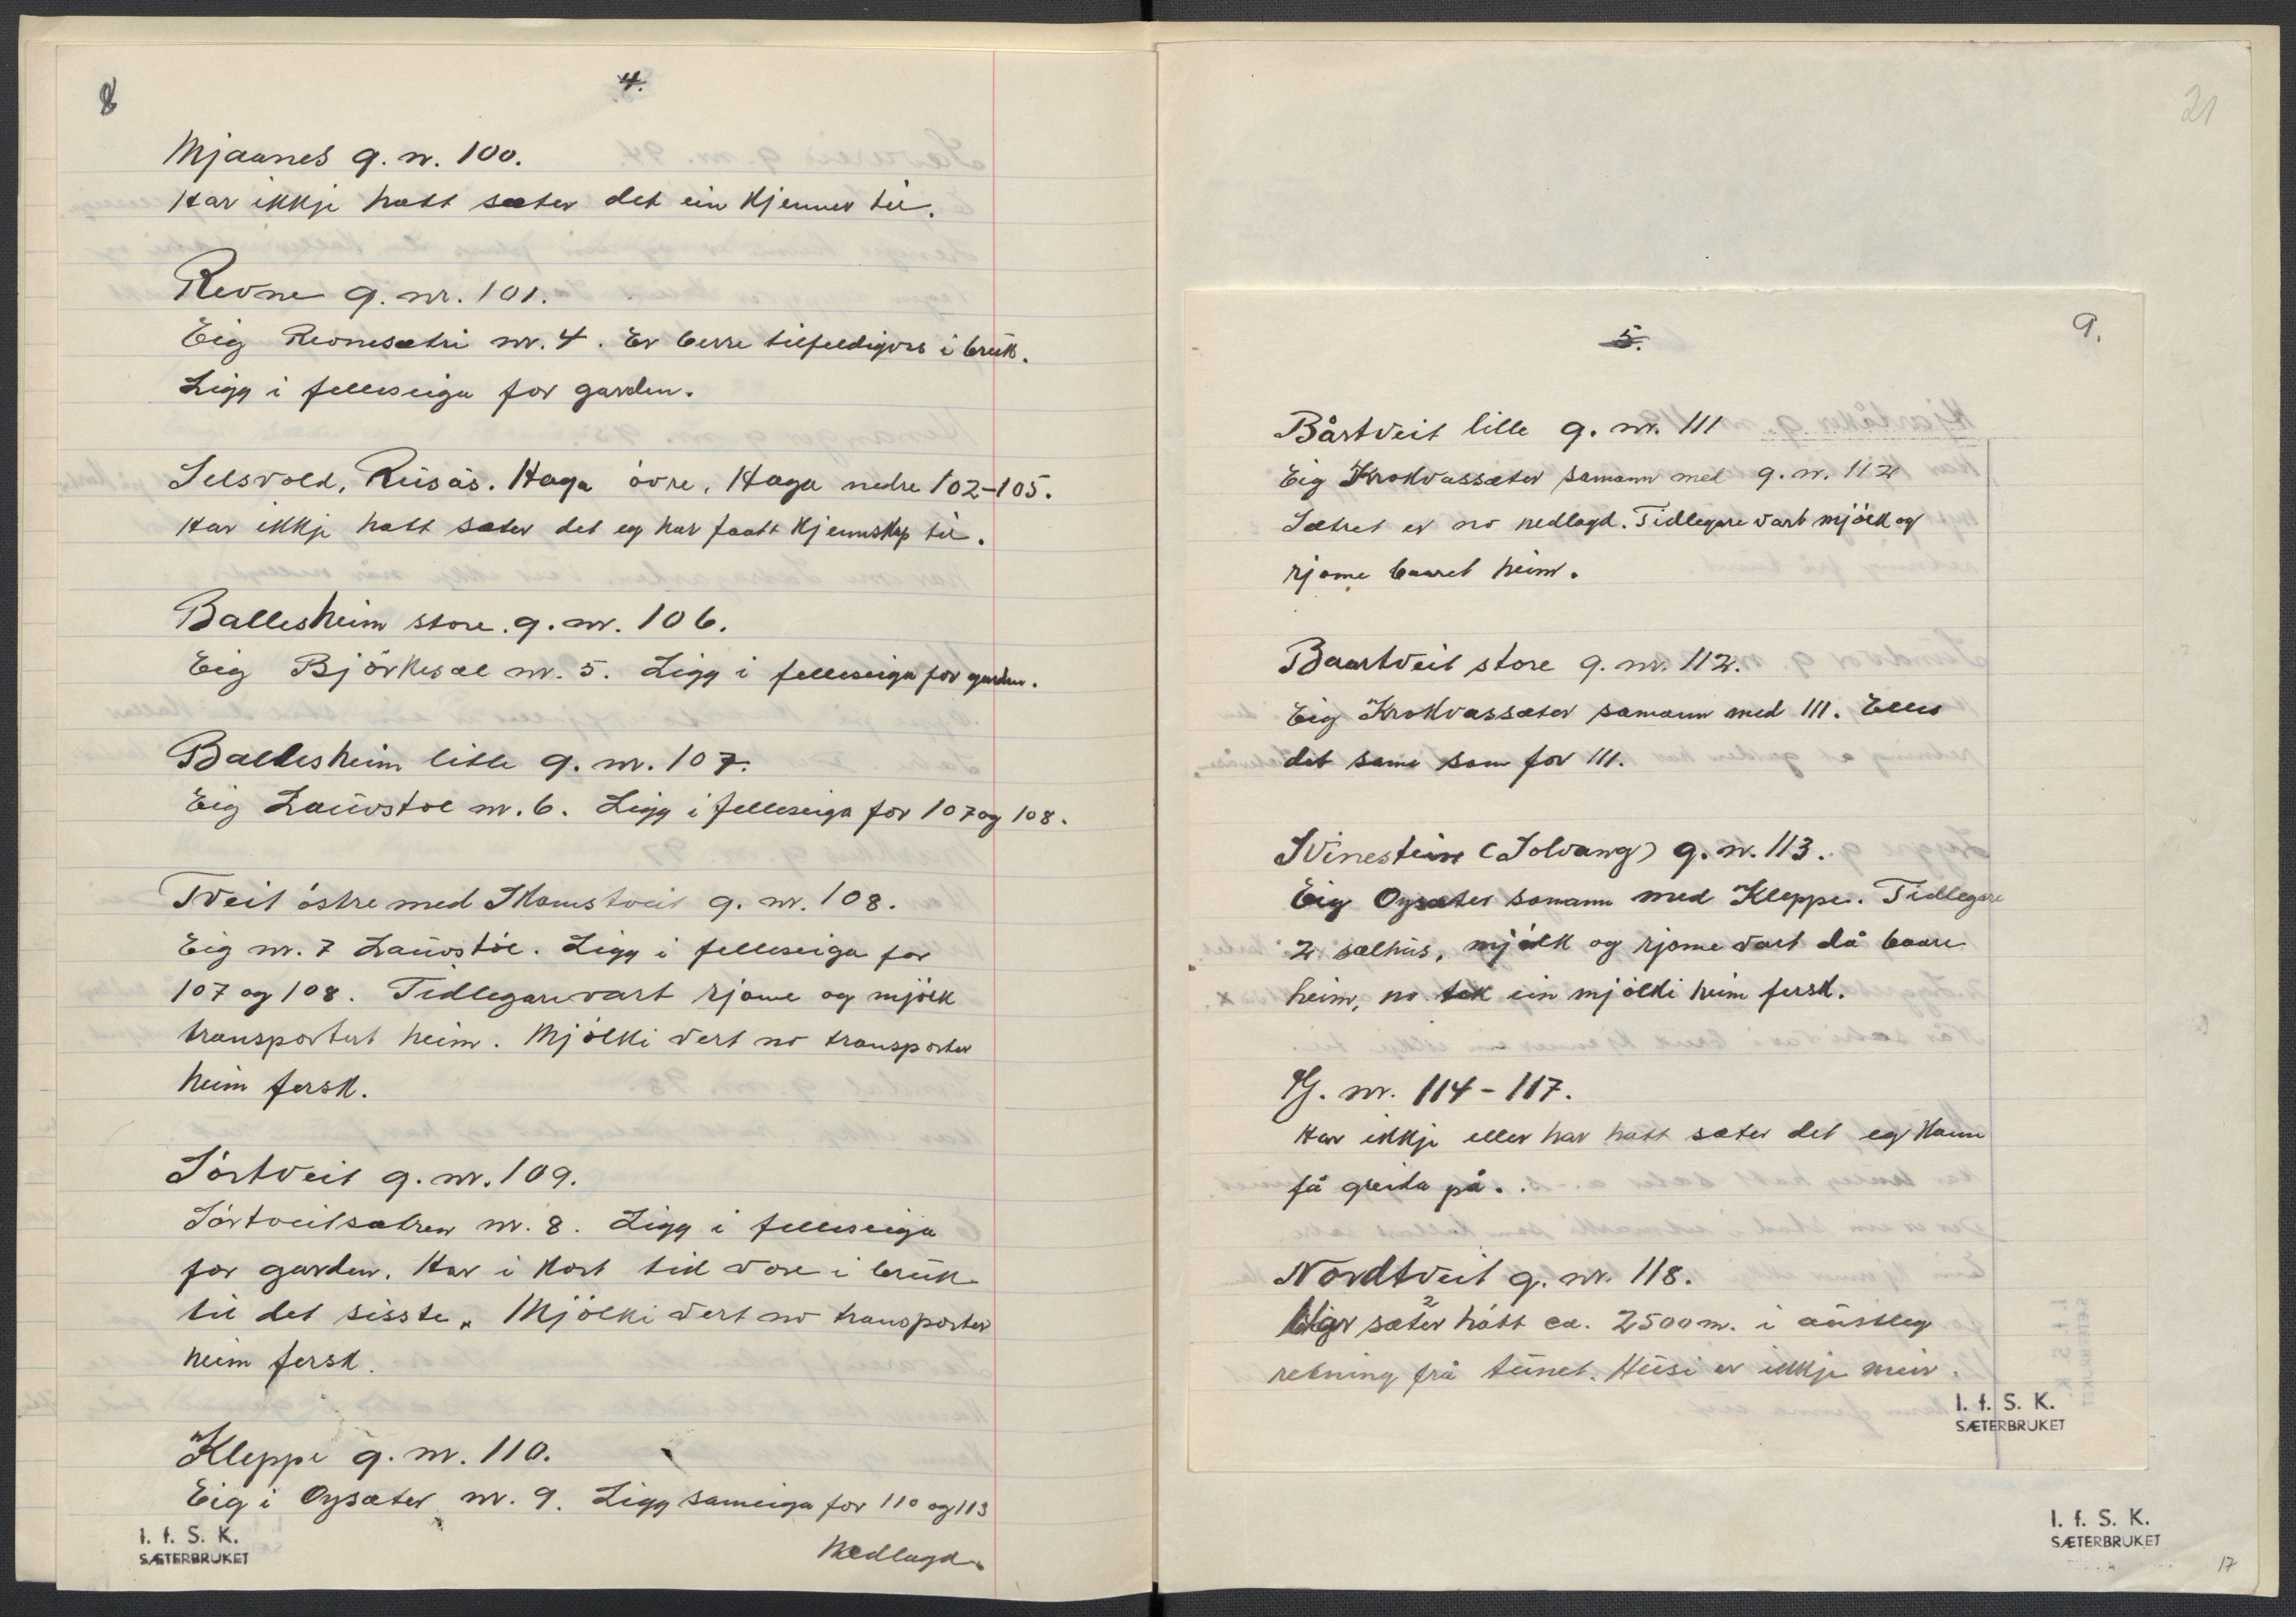 8
4.
Mjaanes g. n. 100.
Har ikkje hatt sæter det ein kjenner til.
Revne g. nr. 101.
Eig Revnesætri nr. 4. Er berre tilfeldigvis i bruk.
Ligg i felleseiga for garden.
Selsvold, Rusås. Haga övre, Haga nedre 102-105.
Har ikkje hatt sæter det eg har faatt kjennskap til.
Ballesheim store. g. nr. 106.
Eig Björkesæl nr. 5. Ligg i felleseiga for garden.
Ballesheim litle g. nr. 107.
Eig Lauvstöl nr. 6. Ligg i felleseiga for 107 og 108.
Tveit östre med Skamstveit g. nr. 108.
Eig nr. 7 Lauvstöl. Ligg i felleseiga for
107 og 108. Tidlegare vart rjome og mjölk
transportert heim. Mjölki vert no transporter
heim fersk.
Sörtveit g. nr. 109.
Sörtveitsætren nr. 8. Ligg i felleseiga
for garden. Har i kort tid vore i bruk
til det sisste. Mjölki vert no transporter
heim fersk.
Kleppe g. nr. 110.
Eig i Oysæter nr. 9. Ligg sameiga for 110 og 113
Nedlagd.
I. f. S. K.
SÆTERBRUKET
21
9.
5.
Bårtveit lille g. nr. 111
Eig Krokvassæter samann med g. n. 112
Sætret er no nedlagd. Tidlegare vart mjölk og
rjome baaret heim.
Baartveit store g. nr. 112.
Eig Krokvassæter samann med 111. Elles
det same som for 111.
Svinestein (Solvang) g. n. 113.
Eig Oysæter samann med Kleppe. Tidlegare
2 sælhus, mjölk og rjome vart då baare
heim, no tek ein mjölki heim fersk.
G. nr. 114-117.
Har ikkje eller har hatt sæter det eg kann
få greida på.
Nordtveit g. nr. 118.
Her sæter 2 hatt ca. 2500 m. i austleg
retning frå tunet. Husi er ikkje meir.
I. f. S. K.
SÆTERBRUKET
I. f. S. K.
SÆTERBRUKET
17